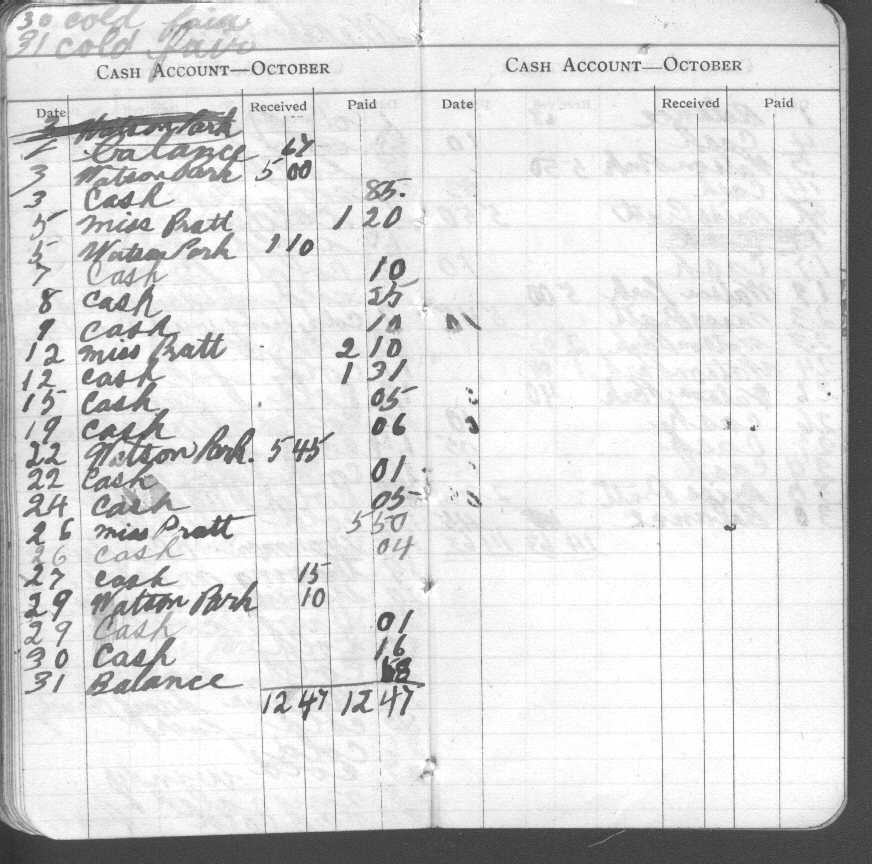 30 cold fair
31 cold fair
CASH ACCOUNT—OCTOBER
Date Received Paid
3 Watson Park
1 balance 67
3 Watson Park 5 00
3 Cash 85.
5 miss Pratt 1 20
5 Watson Park 1 10
7 Cash 10
8 Cash 25
9 Cash 10
12 miss Pratt 2 10
12 cash 1 31
15 Cash 05
19 Cash 06
22 Watson Park. 5 45
22 Cash 01
24 Cash 05
26 miss Pratt 5 50
26 cash 04
27 cash 15
29 Watson Park 10
29 Cash 01
30 Cash 16
31 Balance 68
12 47 12 47
CASH ACCOUNT—OCTOBER
Date Received Paid